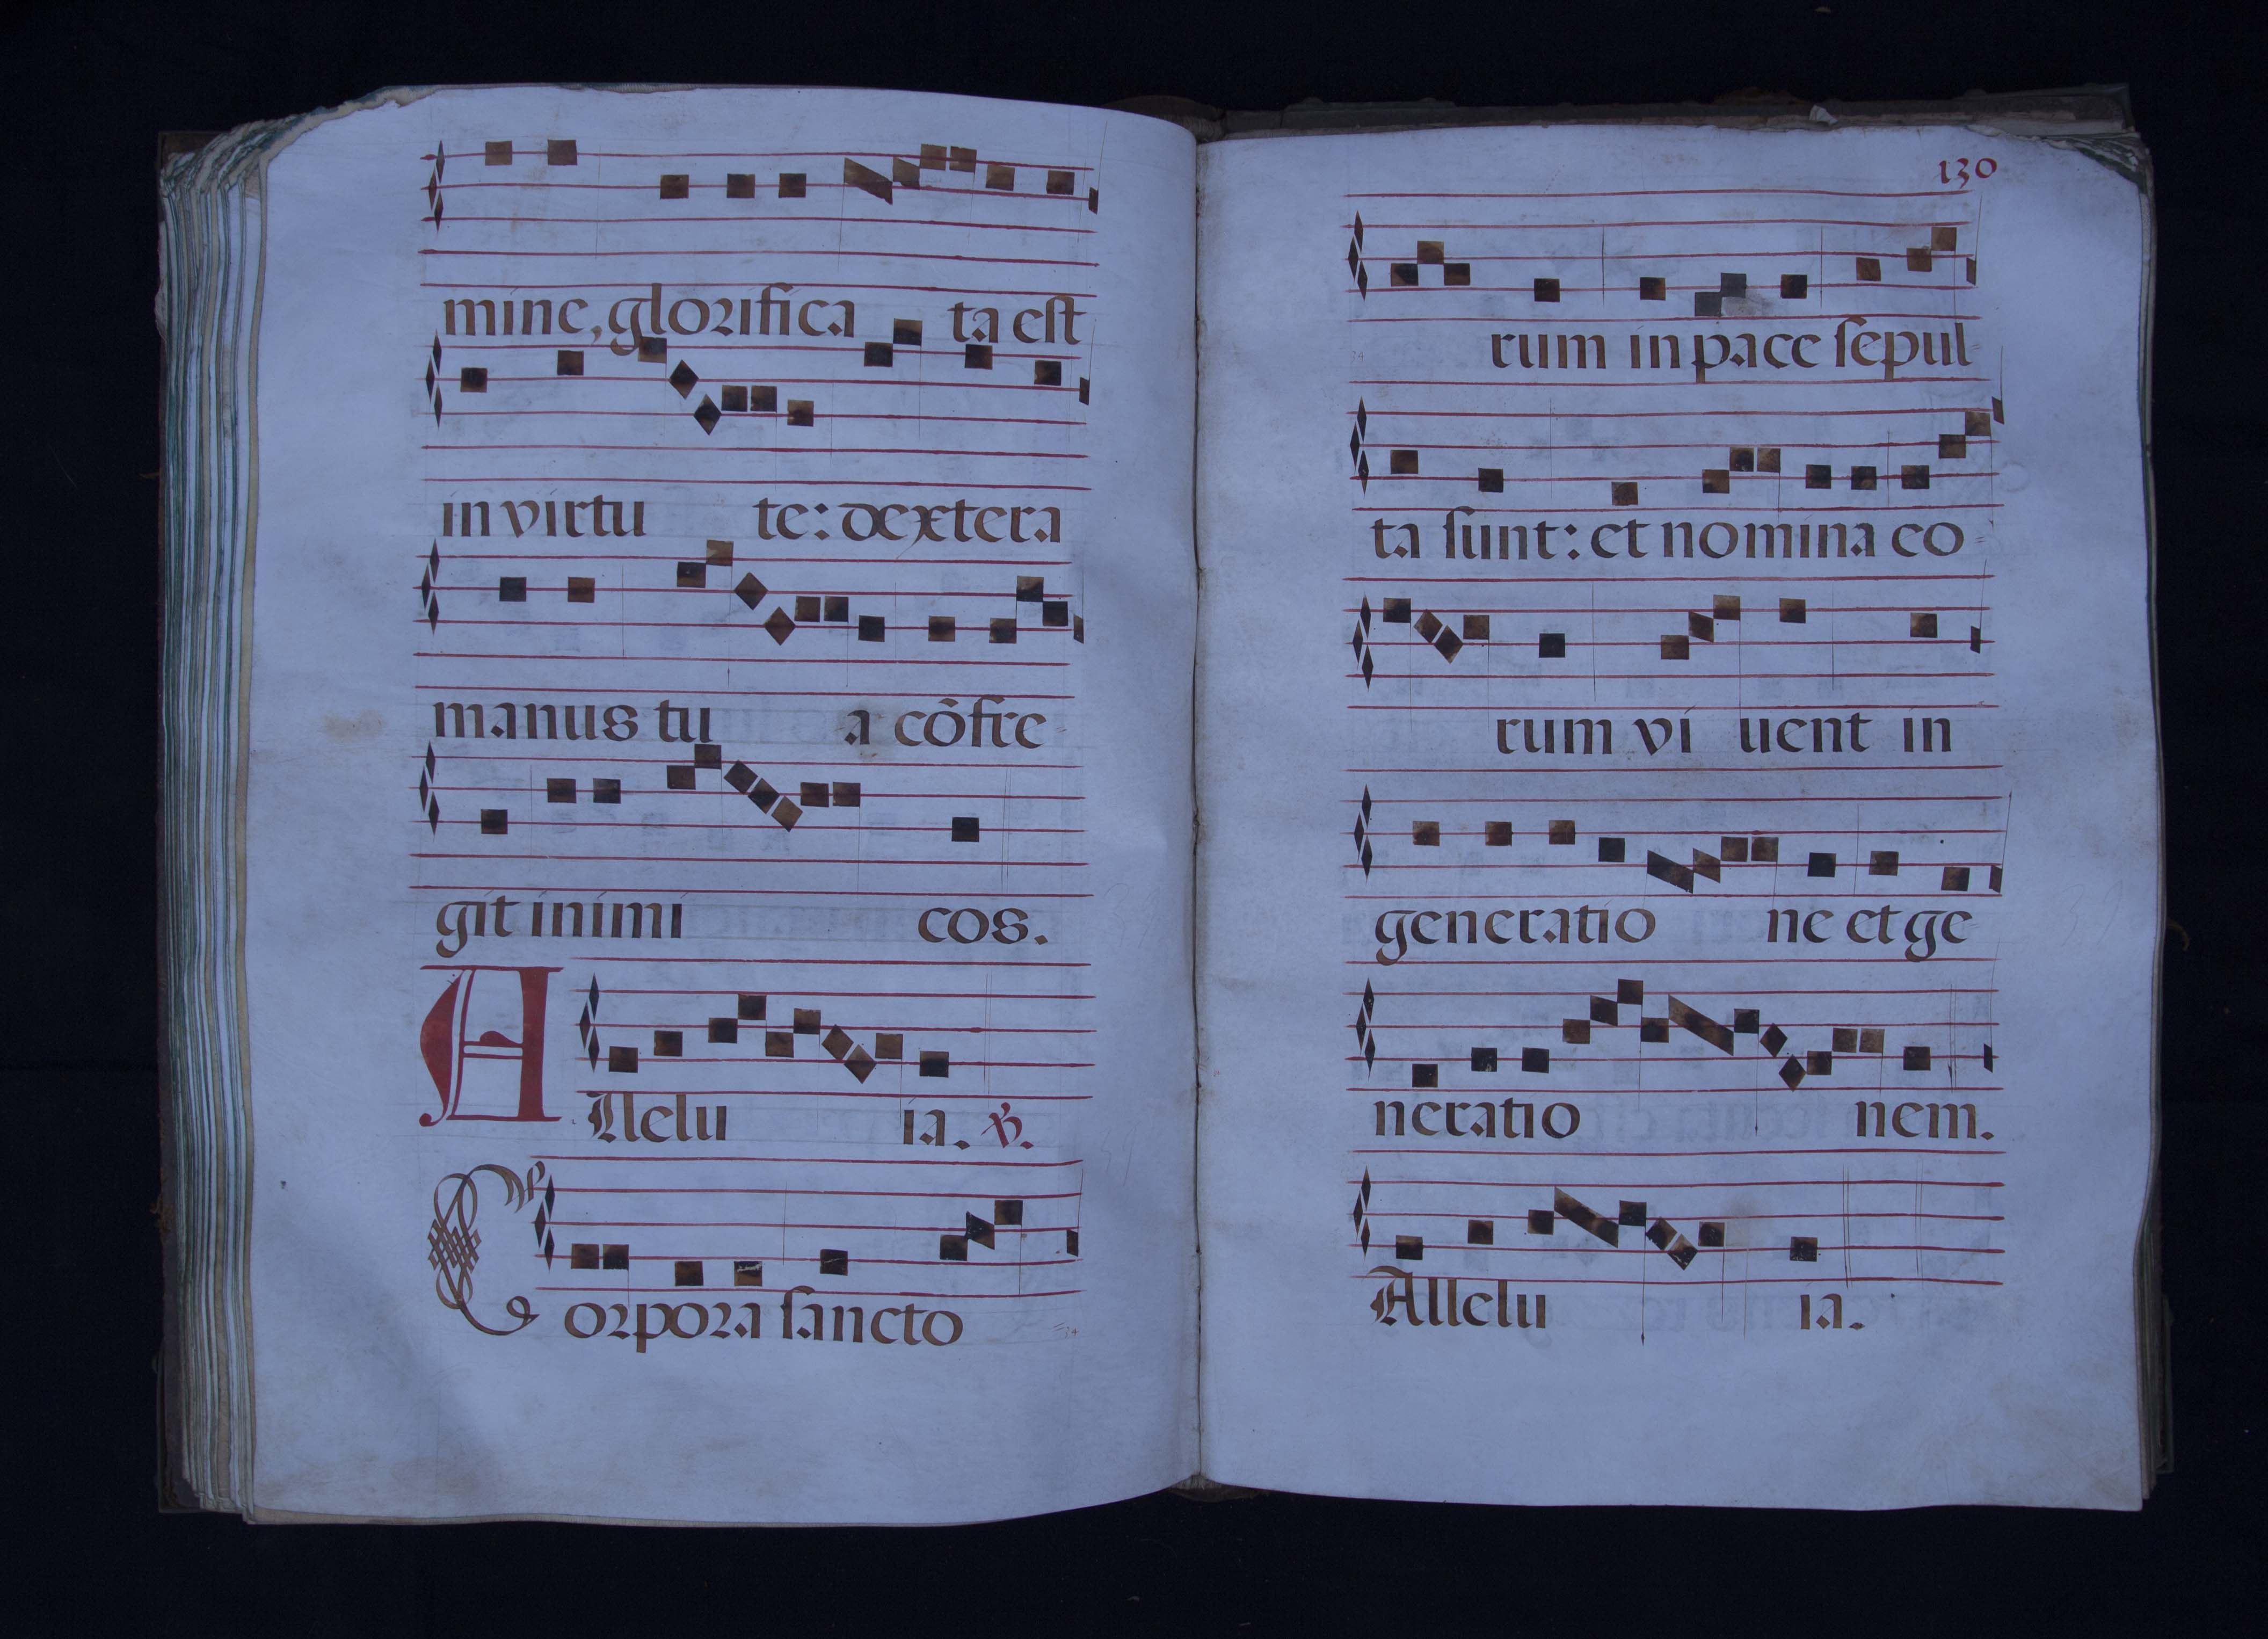 mine, glorifica ta est
in virtu te: dextera
manus tu a cõfre-
git inimi cos.
Allelu ia. ℣.
Corpora sancto
130
rum in pace sepul-
ta sunt: et nomina co-
rum vi uent in
generatio ne et ge-
neratio nem.
Allelu ia.